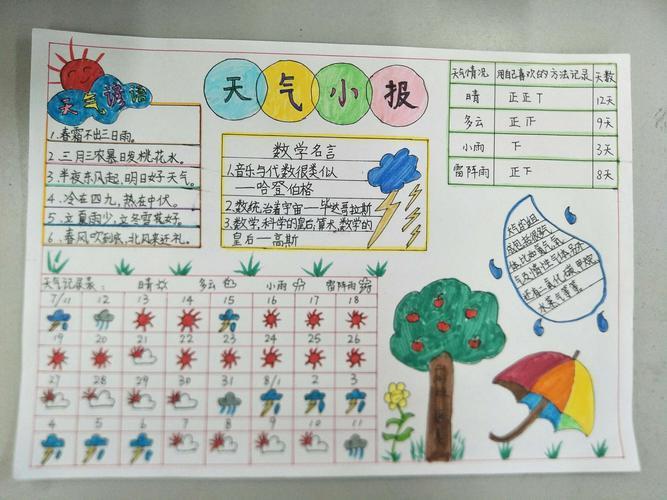 天气小报
天气谚语
1.春霜不出三日雨。
2.三月三浓暴日发桃花水。
3.半夜东风起,明日好天气。
4.冷在四九,热在中伏。
5.立夏雨少,立冬雪花好。
6.春风吹到底,北风来还礼。
数学名言
1.音乐与代数很类似
—哈登伯格
2.数统治着宇宙—毕达哥拉斯
3.数学,科学的皇后;算术,数学的
皇后—高斯
天气情况 用自己喜欢的方法记录 天数
晴 正正T 12天
多云 正下 9天
小雨 下 3天
雷阵雨 正下 8天
天气记录表: 晴 多云 小雨 雷阵雨
7/11 12 13 14 15 16 17 18
19 20 21 22 23 24 25 26
27 28 29 30 31 8/1 2 3
4 5 6 7 8 9 10 11
大气的组
成包括氮气
体,比如氧气,氮
气及惰性气体另外
还有二氧化碳,甲烷,
水蒸气等等。